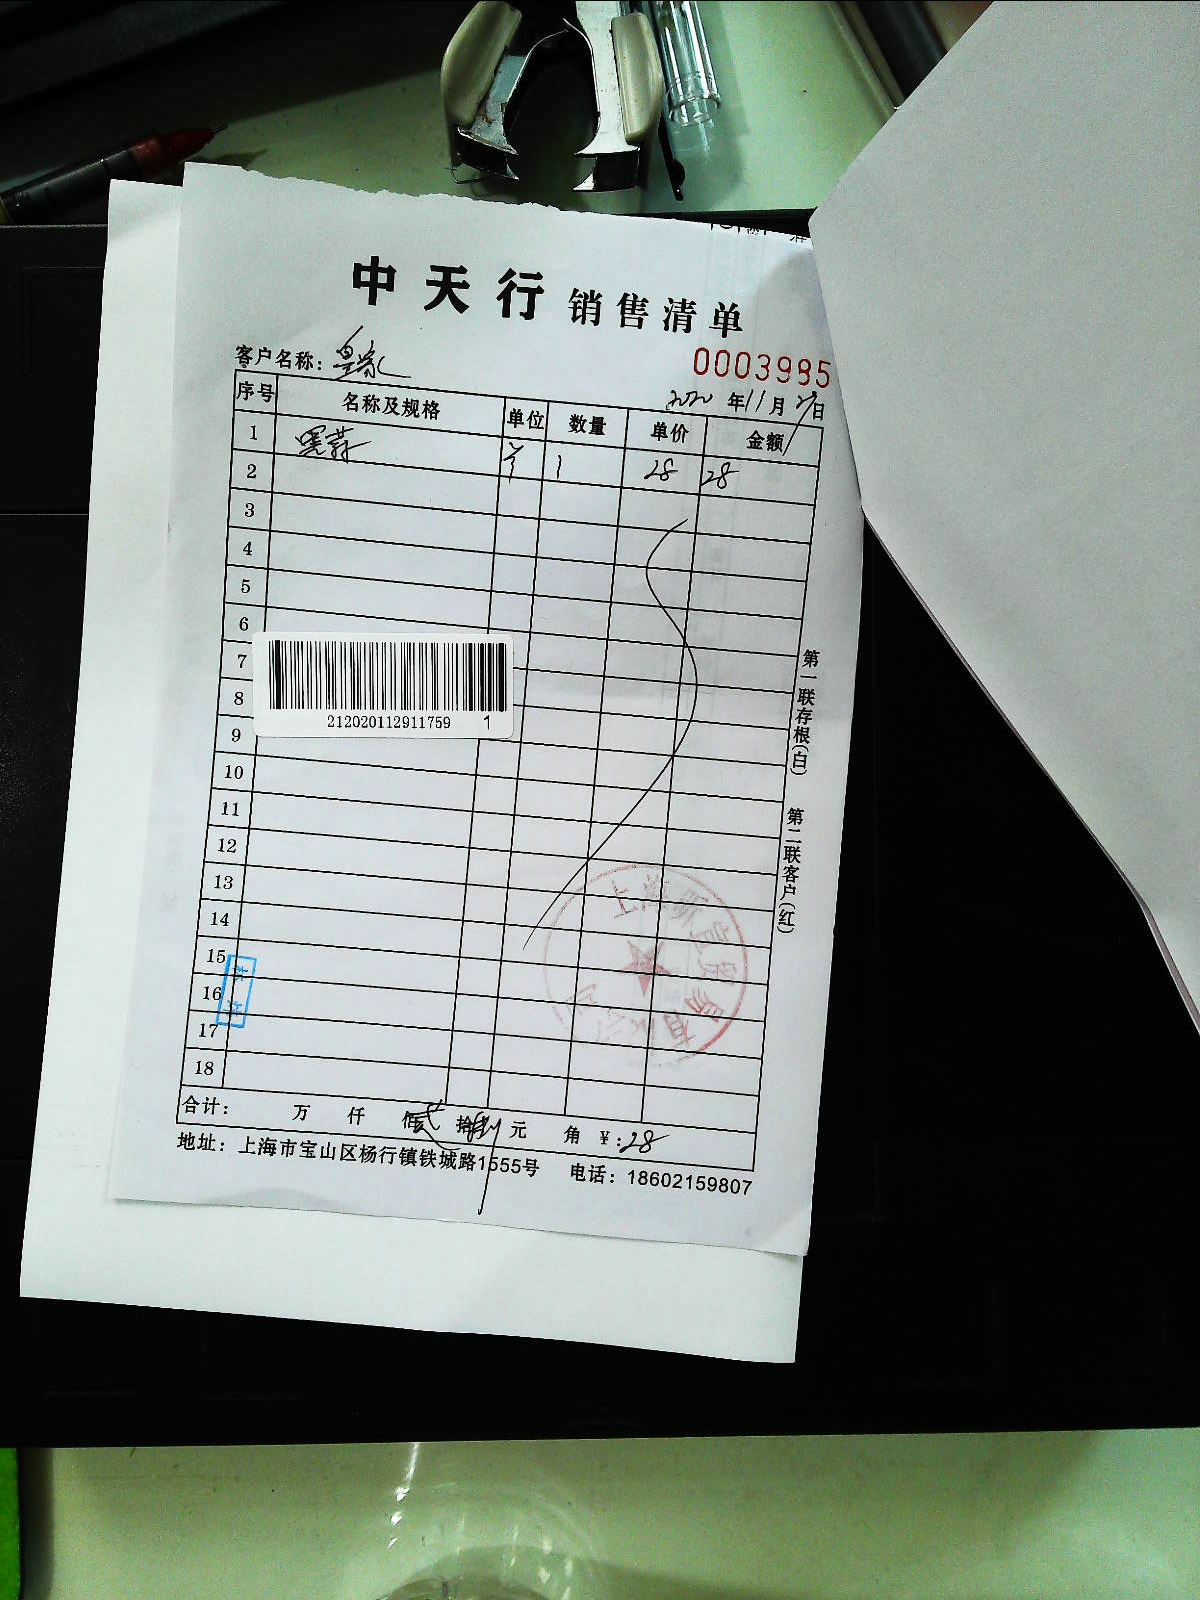 中天行 销售清单
0003985
客户名称: 皇家
2020 年 11 月 27 日
序号 名称及规格 单位 数量 单价 金额
1 黑蒜 1 28 28
2
3
4
5
6
7
8
9
10
11
12
13
14
15
16
17
18
212020112911759 1
第一联存根(白) 第二联客户(红)
上海 贸易有限公司
合计: 万 仟 佰 贰 拾 捌 元 角 ¥:28
地址: 上海市宝山区杨行镇铁城路1555号 电话: 18602159807